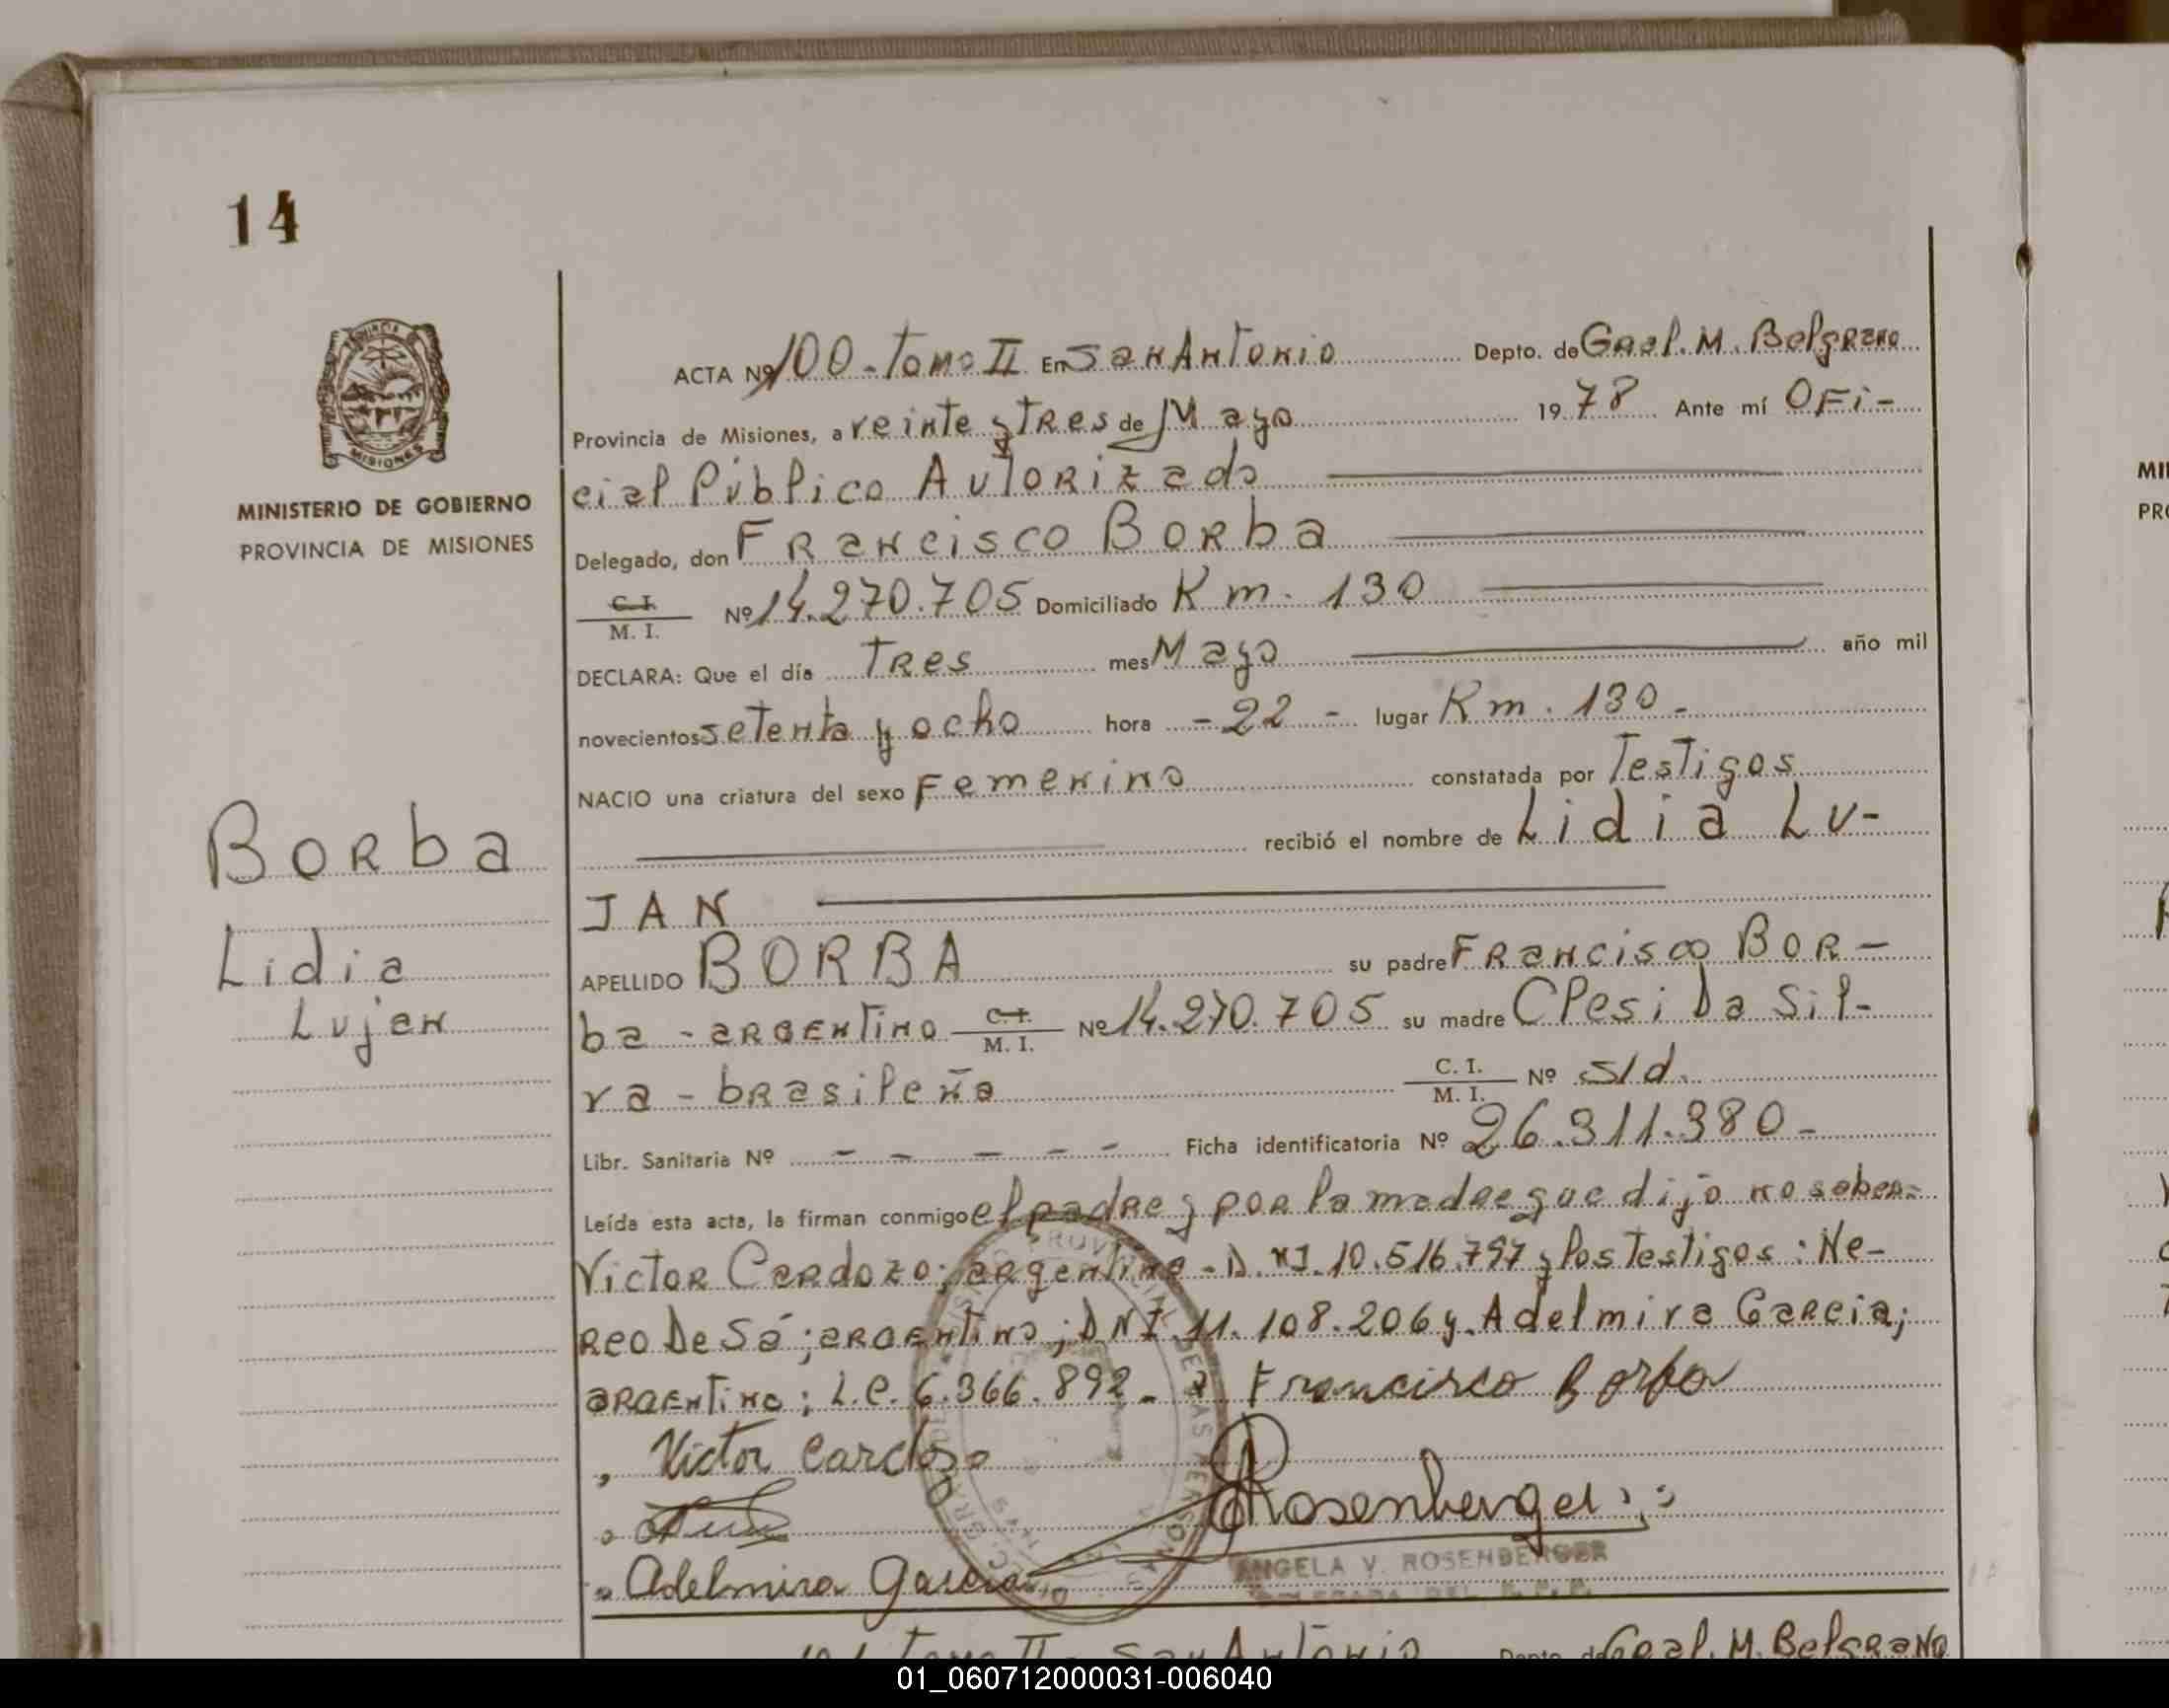 14
ACTA Nº 100 - Tomo II En San Antonio Depto. de Gral. M. Belgrano
Provincia de Misiones, a veinte y tres de Mayo 1978 Ante mí Ofi-
cial Público Autorizado
Delegado, don Francisco Borba
C.I. / M. I. Nº 14.270.705 Domiciliado Km. 130
DECLARA: Que el día Tres mes Mayo año mil
novecientos setenta y ocho hora - 22 - lugar Km. 130 -
NACIO una criatura del sexo Femenino constatada por Testigos
recibió el nombre de Lidia Lu-
JAN
APELLIDO BORBA su padre Francisco Bor-
ba - argentino C.I. / M. I. Nº 14.270.705 su madre Clesi Da Sil-
va - brasileña C. I. / M. I. Nº s/d.
Libr. Sanitaria Nº - - - - - Ficha identificatoria Nº 26.311.380 -
Leída esta acta, la firman conmigo el padre y por la madre que dijo no saber=
Victor Cardozo; argentino - D.NI. 10.516.797 y los testigos: Ne-
reo De Sá; argentino; DNI 11.108.206 y Adelmira Garcia;
argentina; L.C. 6.366.892 - Francisco Borba
Victor Cardoso
Rosenberger
Adelmira Garcia
ANGELA V. ROSENBERGER
MINISTERIO DE GOBIERNO
PROVINCIA DE MISIONES
Borba
Lidia
Lujan
101 Tomo II - San Antonio Depto. de Gral. M. Belgrano
MI
PRO
01_060712000031-006040